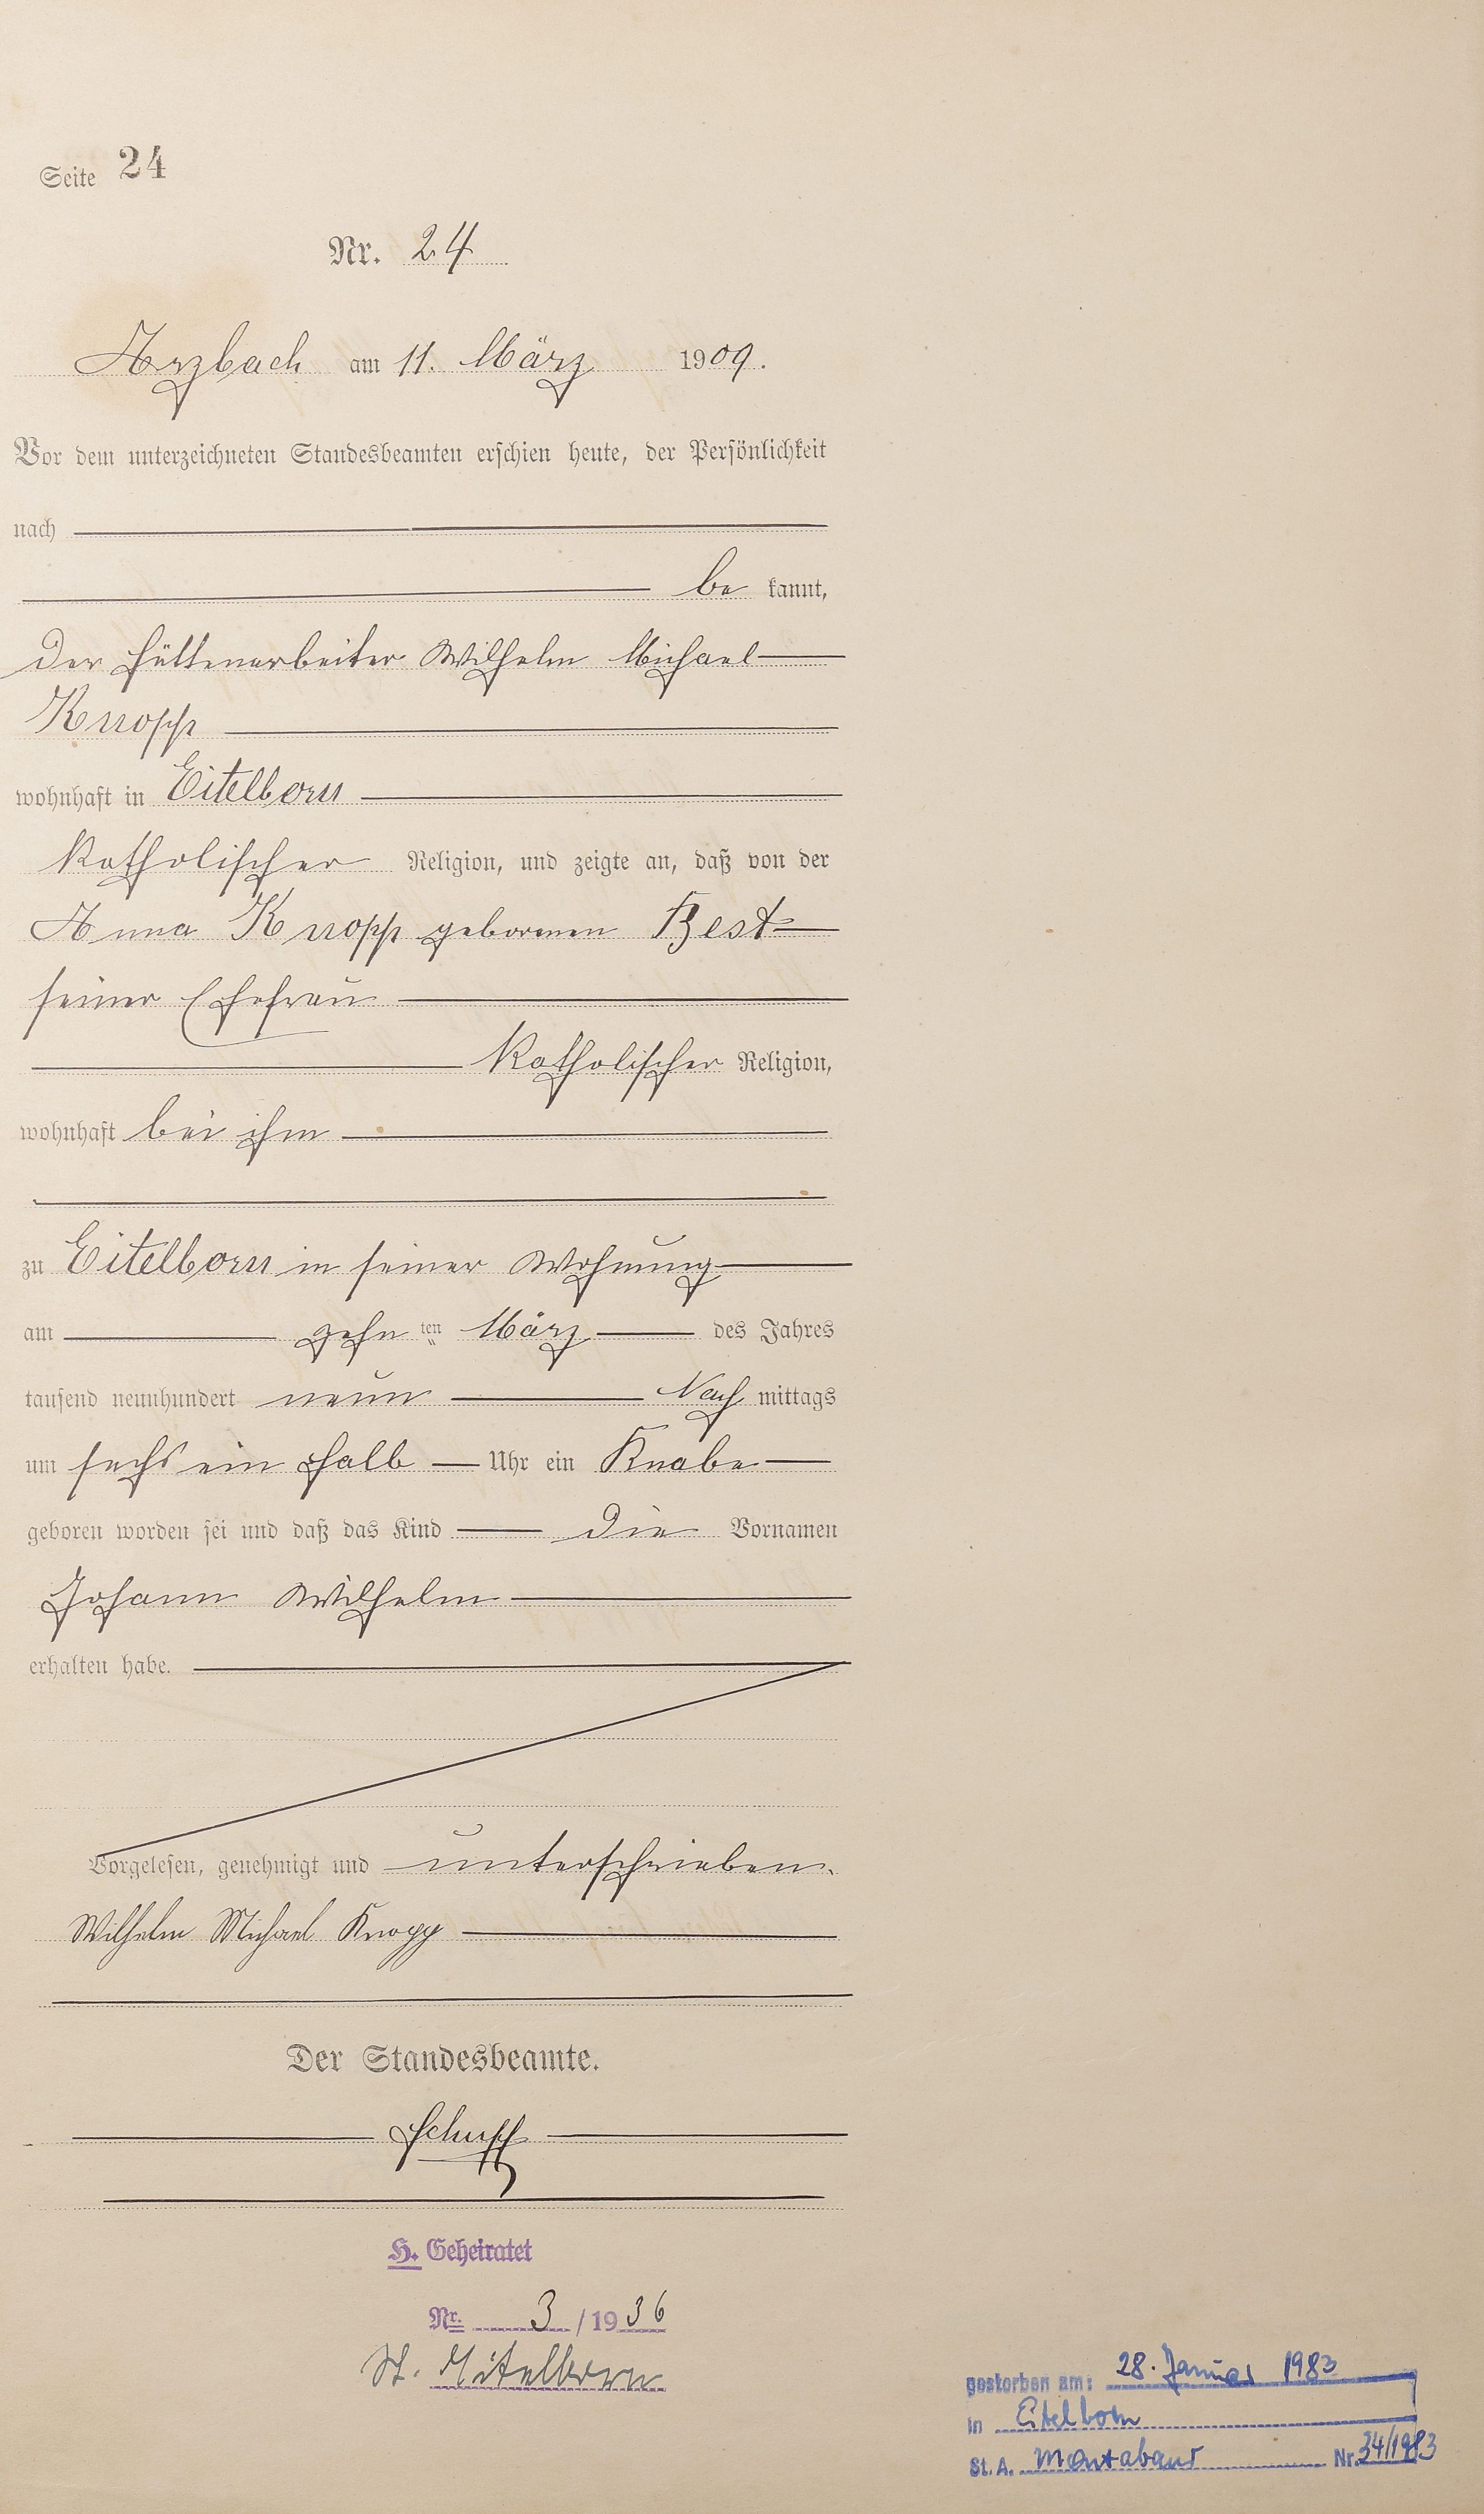 Seite 24
Nr. 24
Arzbach am 11. März 1909.
Vor dem unterzeichneten Standesbeamten erschien heute, der Persönlichkeit
nach
be kannt,
der Hüttenarbeiter Wilhelm Michael
Knopp
wohnhaft in Eitelborn
katholischer Religion, und zeigte an, daß von der
Anna Knopp geborenen Best
seiner Ehefrau
katholischer Religion,
wohnhaft bei ihm
zu Eitelborn in seiner Wohnung
am zehn ten März des Jahres
tausend neunhundert neun Nach mittags
um sechs ein halb Uhr ein Knabe
geboren worden sei und daß das Kind die Vornamen
Johann Wilhelm
erhalten habe.
Vorgelesen, genehmigt und unterschrieben.
Wilhelm Michael Knopp
Der Standesbeamte.
H. Geheiratet
Nr. 3 /1936
St. Eitelborn
gestorben am: 28. Januar 1983
in Eitelborn
St. A. Montabaur Nr. 34/1983